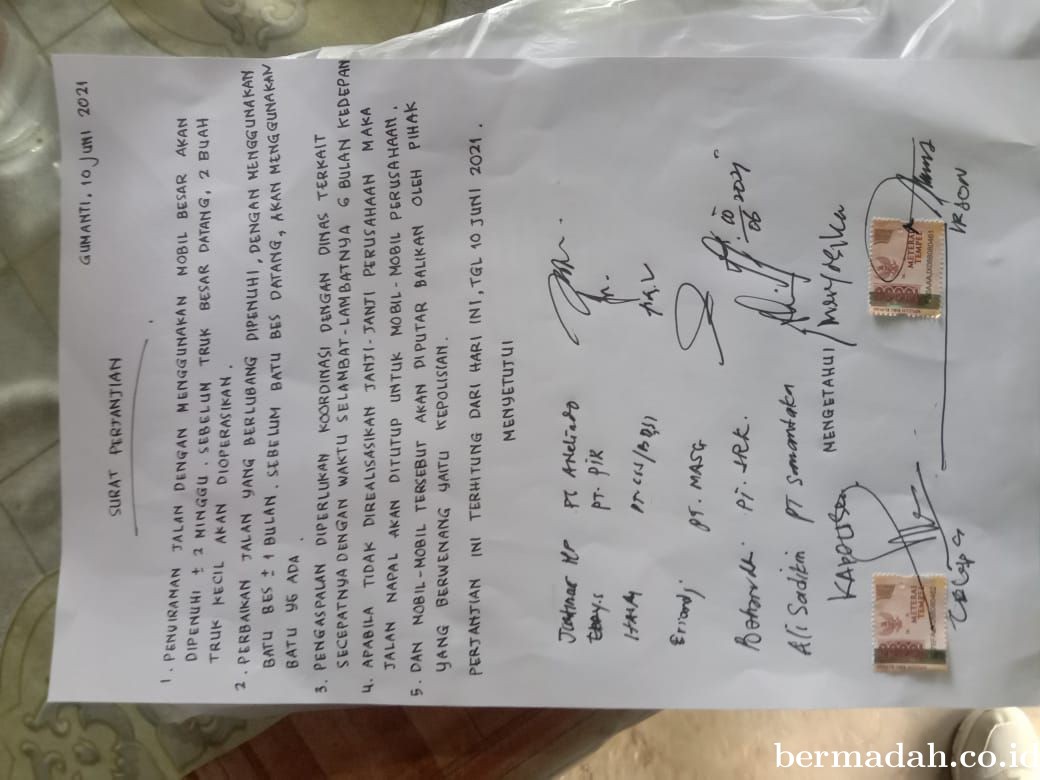 GUNANTI, 10 JUNI 2021
SURAT PERJANJIAN
1. PENYIRAMAN JALAN DENGAN MENGGUNAKAN MOBIL BESAR AKAN
DIPENUHI ± 2 MINGGU. SEBELUM TRUK BESAR DATANG, 2 BUAH
TRUK KECIL AKAN DIOPERASIKAN.
2. PERBAIKAN JALAN YANG BERLUBANG DIPENUHI, DENGAN MENGGUNAKAN
BATU BES ± 1 BULAN. SEBELUM BATU BES DATANG, AKAN MENGGUNAKAN
BATU YG ADA.
3. PENGASPALAN DIPERLUKAN KOORDINASI DENGAN DINAS TERKAIT
SECEPATNYA DENGAN WAKTU SELAMBAT-LAMBATNYA 6 BULAN KEDEPAN
4. APABILA TIDAK DIREALISASIKAN JANJI-JANJI PERUSAHAAN MAKA
JALAN NAPAL AKAN DITUTUP UNTUK MOBIL-MOBIL PERUSAHAAN.
5. DAN MOBIL-MOBIL TERSEBUT AKAN DIPUTAR BALIKAN OLEH PIHAK
YANG BERWENANG YAITU KEPOLISIAN.
PERJANJIAN INI TERHITUNG DARI HARI INI, TGL 10 JUNI 2021.
MENYETUJUI
PT
PT. PIR
PT. MASG
PT. SRK.
10/06 2021
Ali Sadikin PT Samantaka
MENGETAHUI
METERAI
TEMPEL
METERAI
TEMPEL
IRSON
bermadah.co.id